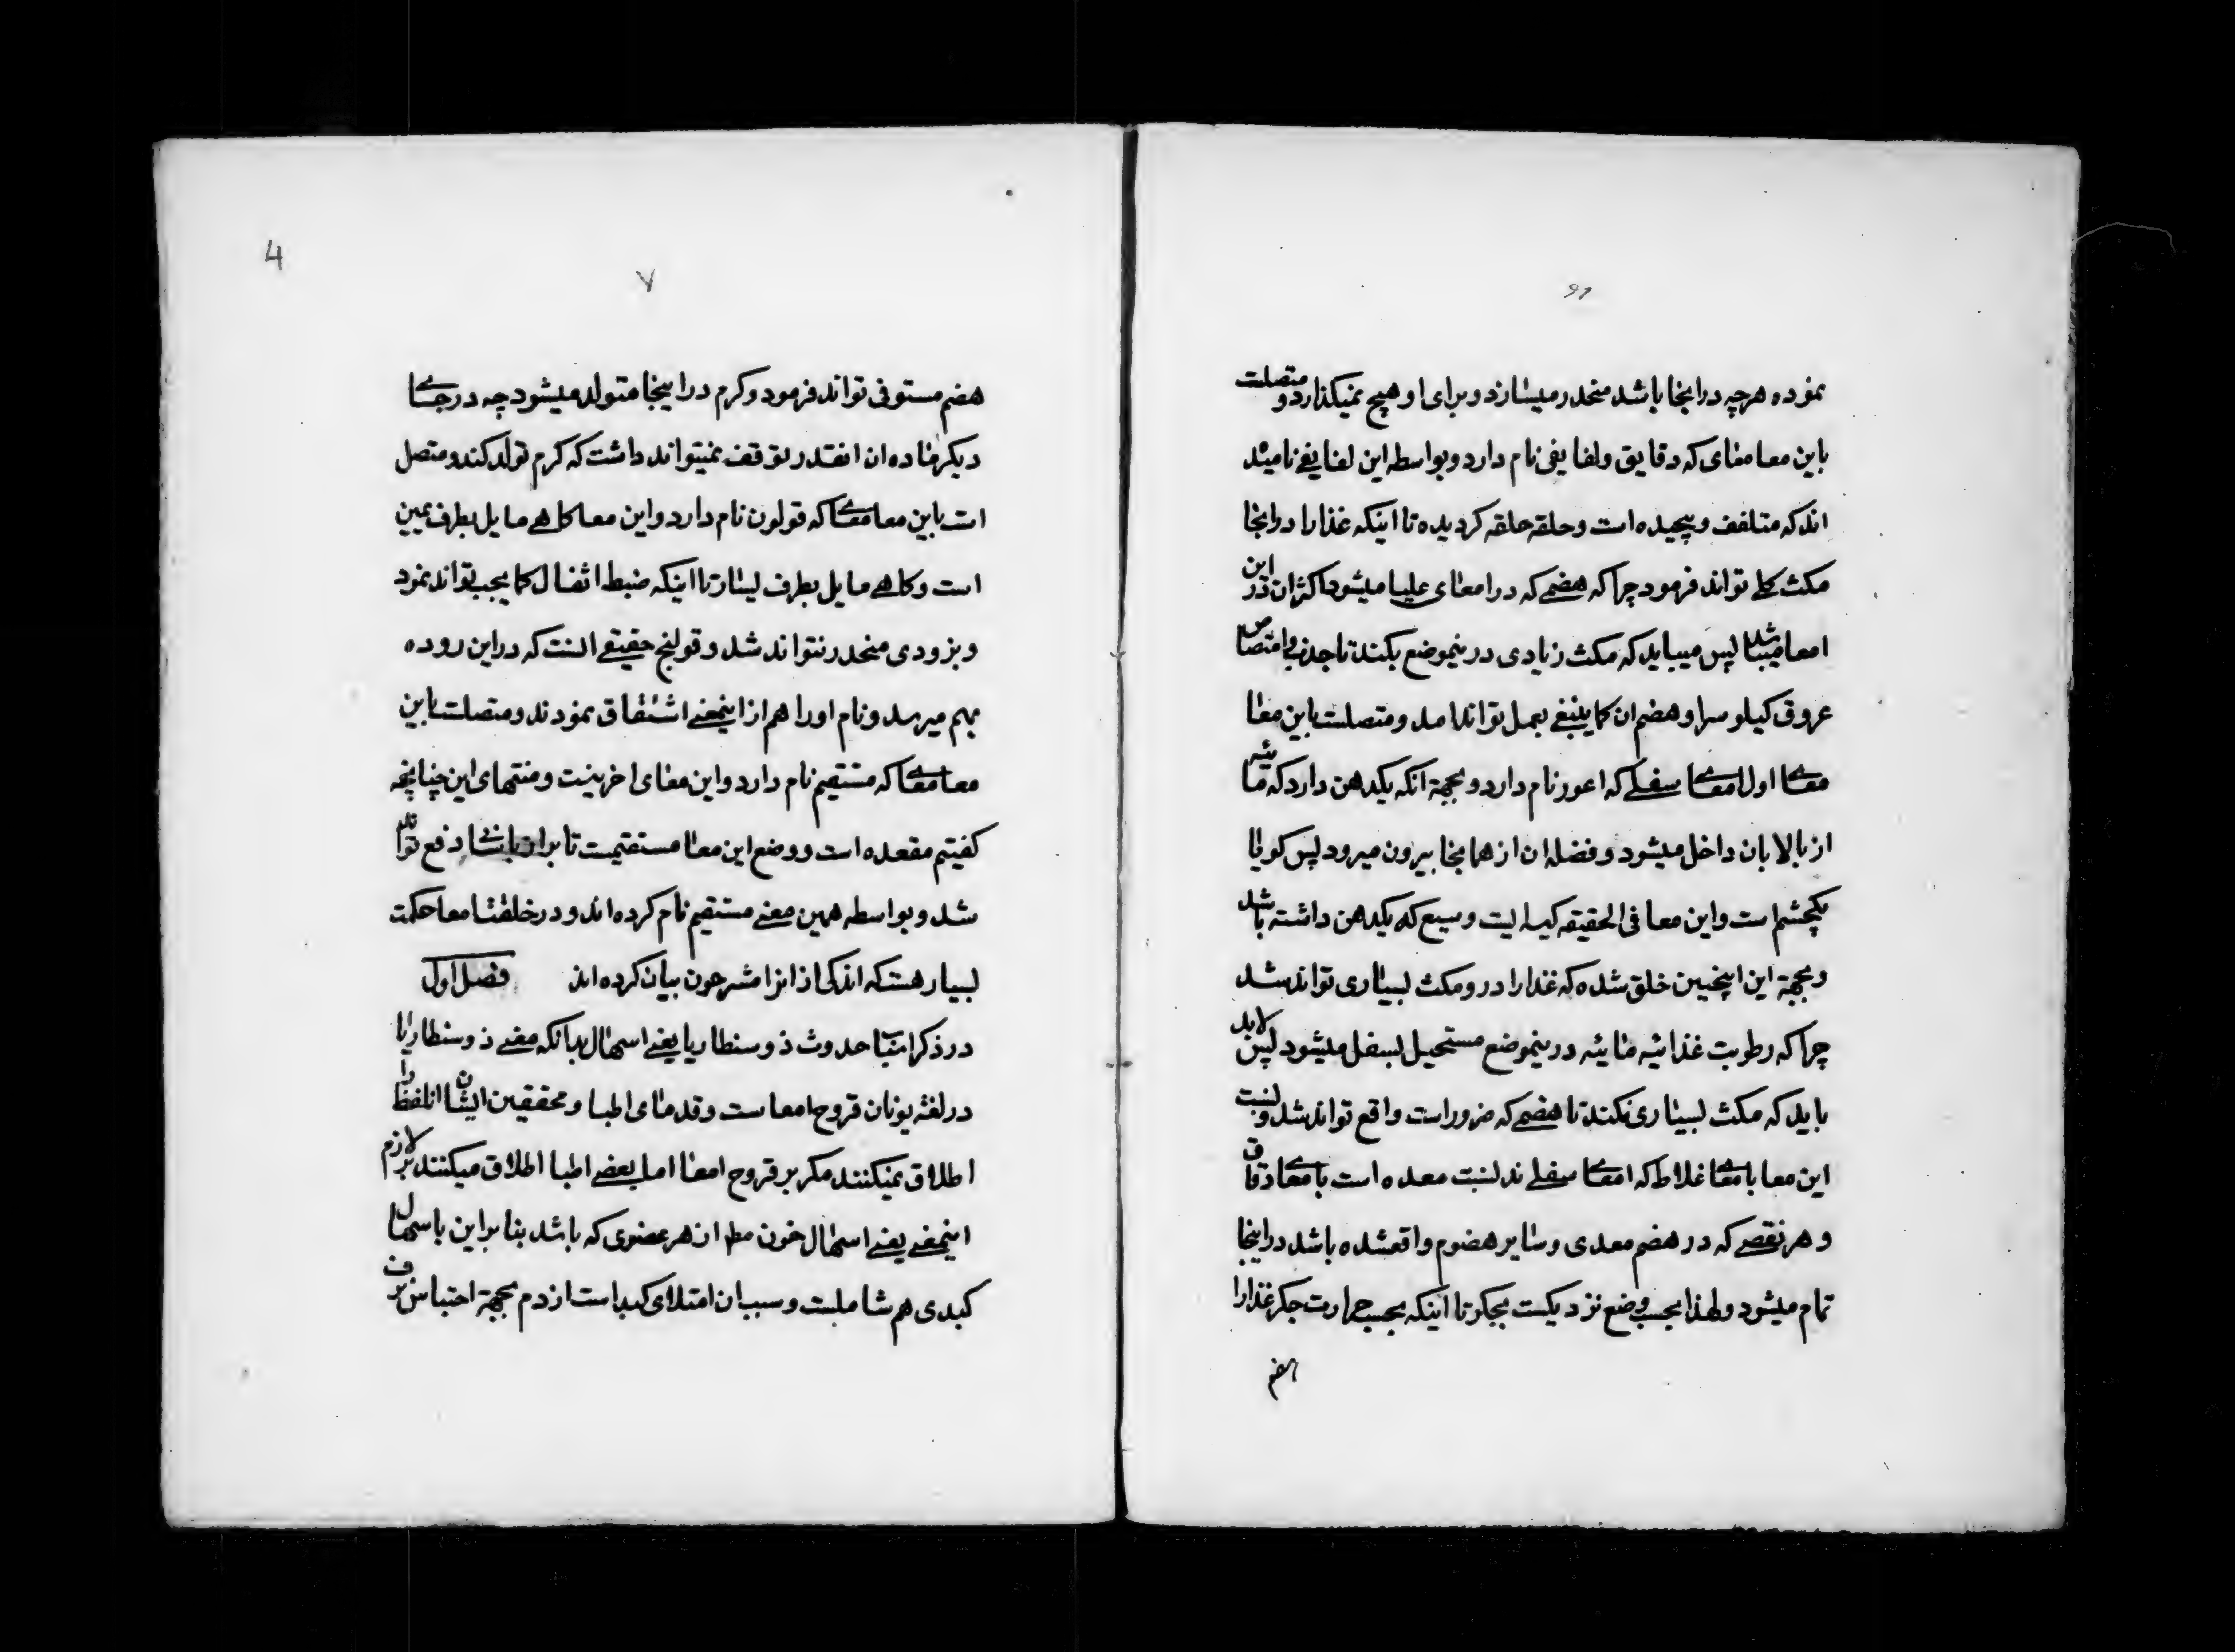 نموده هرچه در اینجا باشد منحدر میسازد و برای او هیچ نمیکذارد و متصلت
باین معا معای که دقایق و لفایفی نام دارد و بواسطه این لفایفی نامیده
اند که متلفف و پیچیده است و حلقه حلقه کردیده تا اینکه غذا را در اینجا
مکث کلی تواند فرمود چرا که هضمی که در امعای علیا میشود اکثر ان در این
امعا میباشد پس میباید که مکث زیادی درینموضع بکند تا جذب و امتصاص
عروق کیلوس را و هضم ان کما ینبغی بعمل تواند امد و متصلت باین معا
معای اول امعای سفلی که اعور نام دارد و بجهة انکه یکدهن دارد که مائیه
از بالا بان داخل میشود و فضله ان از همانجا بیرون میرود پس کویا
یکچشم است و این معا فی الحقیقه کیسه ایست وسیع که یکدهن داشته باشد
و بجهة این اینچنین خلق شده که غذا را درو مکث بسیاری تواند شد
چرا که رطوبت غذائیه مائیه درینموضع مستحیل بسفل میشود پس لابد
باید که مکث بسیاری نکند تا هضمی که ضرور است واقع تواند شد و نسبت
این معا بامعای غلاظ که امعای سفلی ند نسبت معده است بامعای دقاق
و هر نقصی که در هضم معدی و سایر هضوم واقعشده باشد در اینجا
تمام میشود و لهذا بحسب وضع نزدیکست بجکر تا اینکه بحسب حرارت جکر غذا را
هضم
۷
4
هضم مستوفی تواند فرمود و کرم در اینجا متولد میشود چه در جای
دیکر ماده ان انقدر توقف نمیتواند داشت که کرم تولد کند و متصل
است باین معا معای که قولون نام دارد و این معا کاهی مایل بطرف یمین
است و کاهی مایل بطرف یسار تا اینکه ضبط اثفال کما یجب تواند نمود
و بزودی منحدر نتواند شد و قولنج حقیقی انست که در این روده
بهم میرسد و نام او را هم از اینمعنی اشتقاق نمودند و متصلت باین
معا معای که مستقیم نام دارد و این معای اخرینست و منتهای این چنانچه
کفیتم مقعده است و وضع این معا مستقیمست تا براز باسانی دفع تواند
شد و بواسطه همین معنی مستقیم نام کرده اند و در خلقت امعا حکمت
بسیار هست که اندکی از انرا مشرحون بیان کرده اند فصل اول
در ذکر اسباب حدوث ذوسنطاریا یعنی اسهال بدانکه معنی ذوسنطاریا
در لغة یونان قروح امعاست و قدمای اطبا و محققین ایشان انلفظ را
اطلاق نمیکنند مکر بر قروح امعا اما بعضی اطبا اطلاق میکنند بر لازم
اینمعنی یعنی اسهال خون مطلقا از هر عضوی که باشد بنا براین باسهال
کبدی هم شاملست و سبب ان امتلای کبد است از دم بجهة احتباس نزف